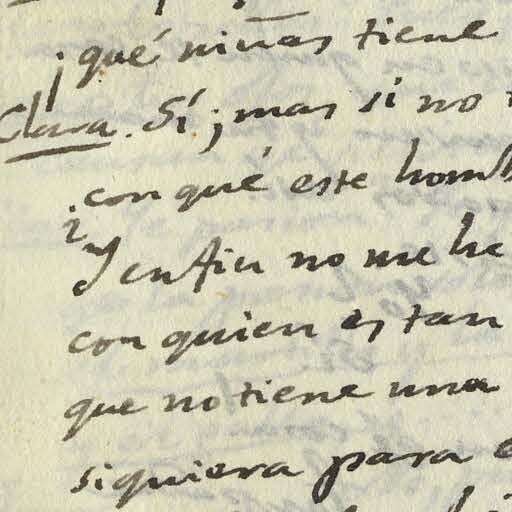 ¡qué niñas tiene
Clara. Sí; mas si no
¿con qué este
Y en fin no me ha
con quien es tan
que no tiene una
siquiera para